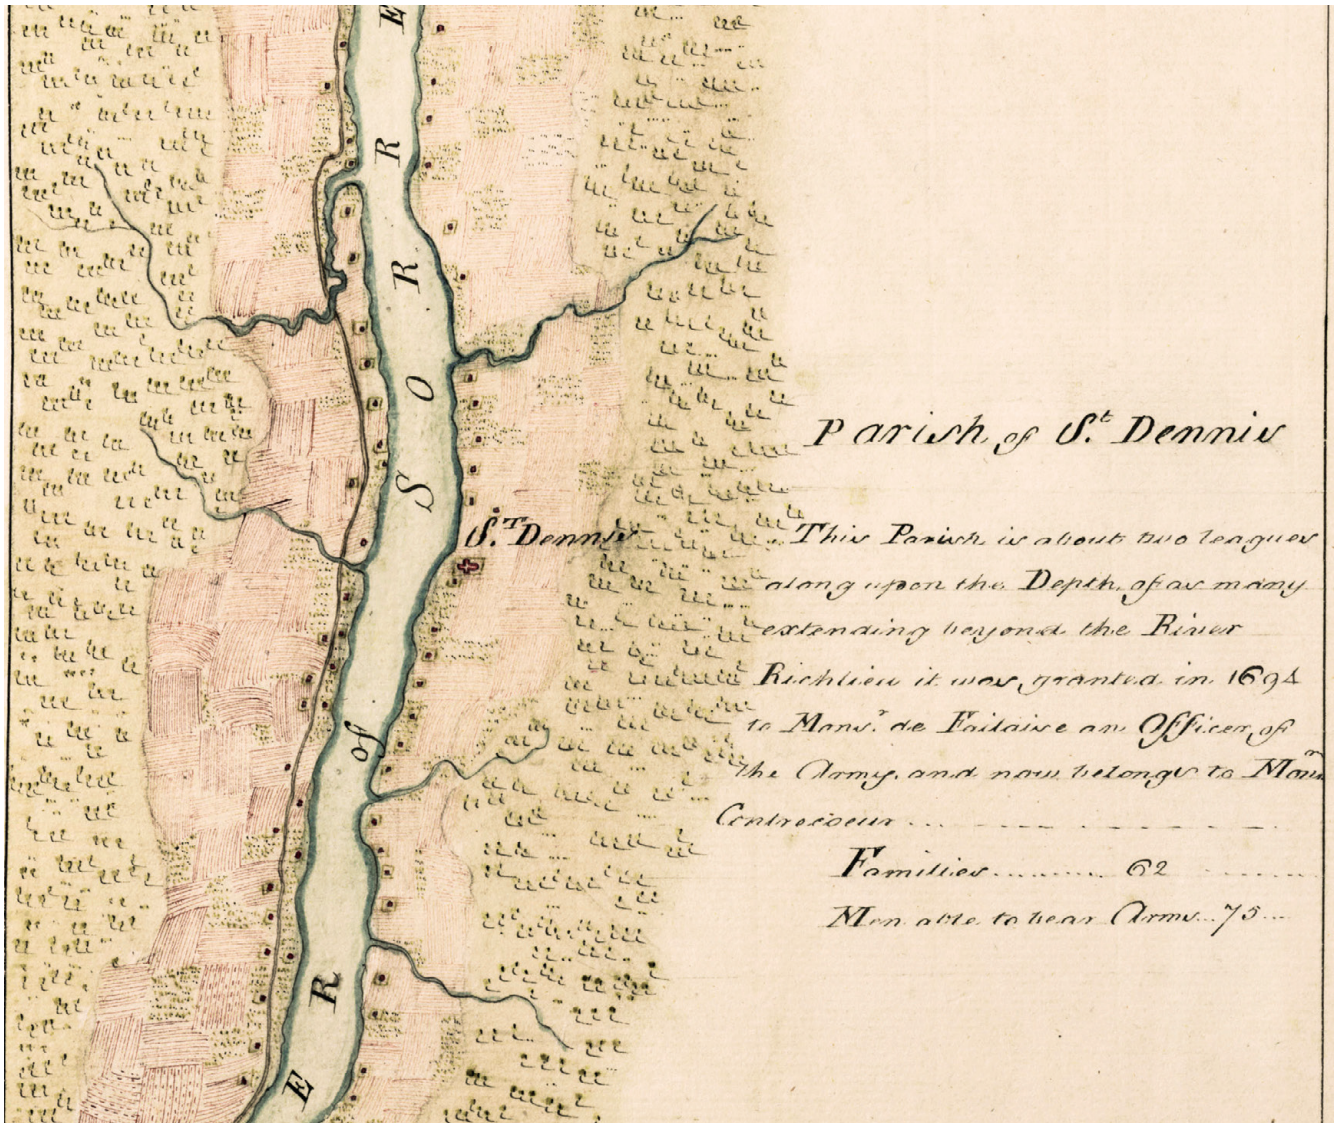 E
R
R
O
S
of
R
E
S.T Dennis
Parish of S.t Dennis
This Parish is about two leagues
along upon the Depth of as many
extending beyond the River
Richlieu it was granted in 1694
to Mons.r de Failaise an Officer of
the Army and now belongs to Mons.r
Contrecoeur
Families 62
Men able to bear Arms 75